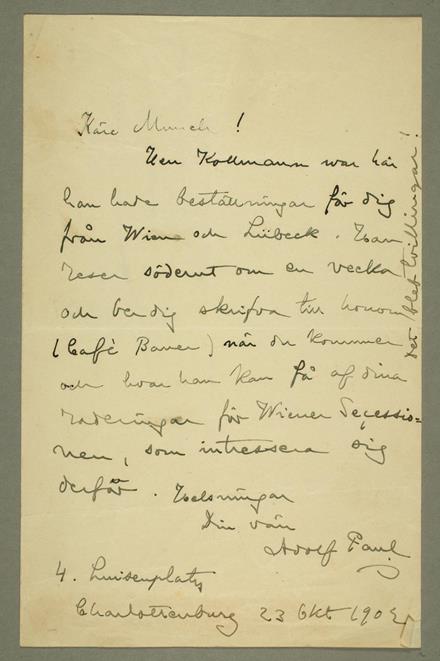 Käre Munch!
Herr Kollmann war här
han hade beställningar för dig
från Wien och Lübeck. Han
reser söderut om en vecka
och ber dig skrifva till honom
(Café Bauer) när du kommer
och hvar han kan få af dina
raderingar för Wiener Secessio=
nen, som intressera sig
derför. Helsningar
Din vän
Adolf Paul
4. Luisenplatz
Charlottenburg 23 Okt 1902
det blef tvillingar!